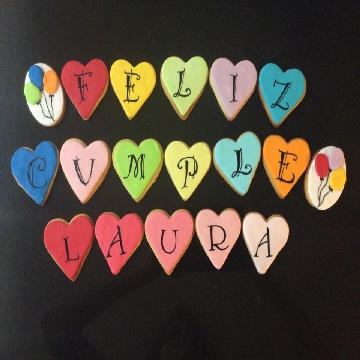 FELIZ
CUMPLE
LAURA